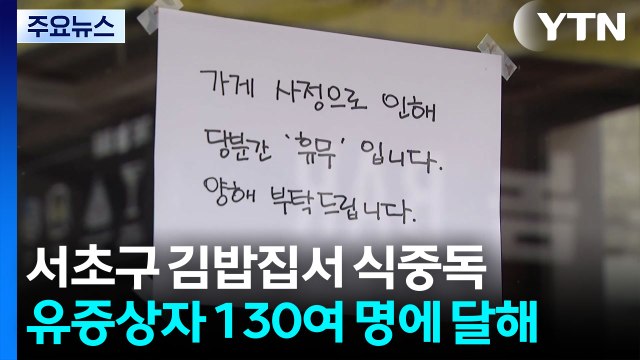 주요뉴스
YTN
가게 사정으로 인해
당분간 '휴무' 입니다.
양해 부탁드립니다.
서초구 김밥집서 식중독
유증상자 130여 명에 달해